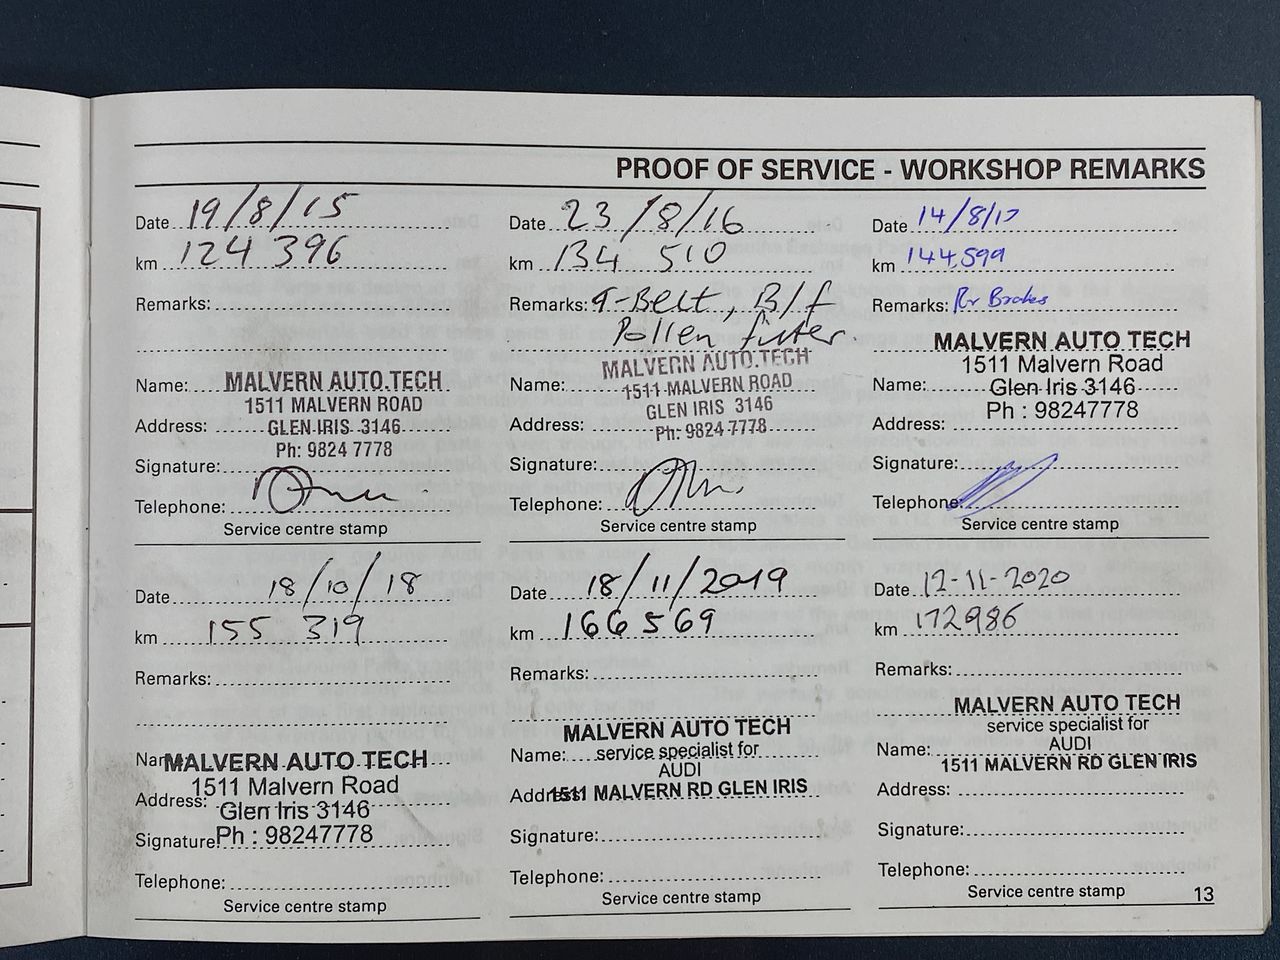 PROOF OF SERVICE - WORKSHOP REMARKS
Date 19/8/15
km 124 396
Remarks:
Name: MALVERN AUTO.TECH
1511 MALVERN ROAD
Address: GLEN IRIS 3146
Ph: 9824 7778
Signature:
Telephone:
Service centre stamp
Date 23/8/16
km 134 510
Remarks: T-Belt, B/f
Pollen filter
MALVERN AUTO.TECH
Name: 1511 MALVERN ROAD
GLEN IRIS 3146
Address: Ph: 9824 7778
Signature:
Telephone:
Service centre stamp
Date 14/8/17
km 144,599
Remarks: Rr Brakes
MALVERN AUTO TECH
1511 Malvern Road
Name: Glen Iris 3146
Ph : 98247778
Address:
Signature:
Telephone:
Service centre stamp
Date 18/10/18
km 155 319
Remarks:
Name: MALVERN AUTO TECH
1511 Malvern Road
Address: Glen Iris 3146
Signature: Ph : 98247778
Telephone:
Service centre stamp
Date 18/11/2019
km 166 569
Remarks:
MALVERN AUTO TECH
Name: service specialist for
AUDI
Address: 1511 MALVERN RD GLEN IRIS
Signature:
Telephone:
Service centre stamp
Date 12-11-2020
km 172986
Remarks:
MALVERN AUTO TECH
service specialist for
Name: AUDI
1511 MALVERN RD GLEN IRIS
Address:
Signature:
Telephone:
Service centre stamp
13